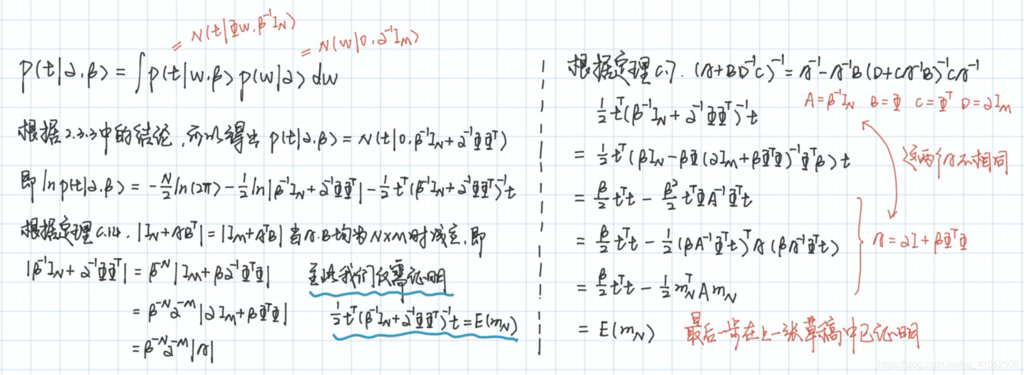 = N(t|Φw, β⁻¹I_N)
= N(w|0, α⁻¹I_M)
p(t|α,β) = ∫p(t|w,β)p(w|α) dw
根据2.3.3中的结论,可以得出 p(t|α,β) = N(t|0, β⁻¹I_N+α⁻¹ΦΦᵀ)
即 ln p(t|α,β) = -N/2 ln(2π) - 1/2 ln|β⁻¹I_N+α⁻¹ΦΦᵀ| - 1/2 tᵀ(β⁻¹I_N+α⁻¹ΦΦᵀ)⁻¹t
根据定理C.14. |I_N+ABᵀ| = |I_M+AᵀB| 当A.B均为N×M时成立,即
|β⁻¹I_N+α⁻¹ΦΦᵀ| = β⁻ᴺ|I_M+βα⁻¹ΦᵀΦ|
= β⁻ᴺα⁻ᴹ|αI_M+βΦᵀΦ|
= β⁻ᴺα⁻ᴹ|A|
至此我们仅需证明
1/2 tᵀ(β⁻¹I_N+α⁻¹ΦΦᵀ)⁻¹t = E(m_N)
根据定理C.7. (A+BD⁻¹C)⁻¹ = A⁻¹-A⁻¹B(D+CA⁻¹B)⁻¹CA⁻¹
A=β⁻¹I_N B=Φ C=Φᵀ D=αI_M
1/2 tᵀ(β⁻¹I_N+α⁻¹ΦΦᵀ)⁻¹t
= 1/2 tᵀ(βI_N-βΦ(αI_M+βΦᵀΦ)⁻¹Φᵀβ)t
这两个A不相同
= β/2 tᵀt - β²/2 tᵀΦA⁻¹Φᵀt
= β/2 tᵀt - 1/2(βA⁻¹Φᵀt)ᵀA(βA⁻¹Φᵀt)
A=αI+βΦᵀΦ
= β/2 tᵀt - 1/2 m_NᵀA m_N
= E(m_N)
最后一步在上一张草稿中已证明